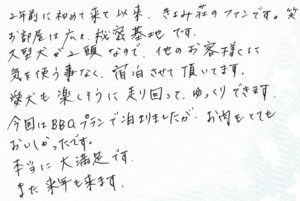 2年前に初めて来て以来、きよみ荘のファンです。笑
お部屋は広く、秘密基地です。
大型犬が2頭なので、他のお客様に
気を使う事なく、宿泊させて頂いてます。
愛犬も楽しそうに走り回って、ゆっくりできます。
今回はBBQプランで泊まりましたが、お肉もとても
おいしかったです。
本当に大満足です。
また来年も来ます。